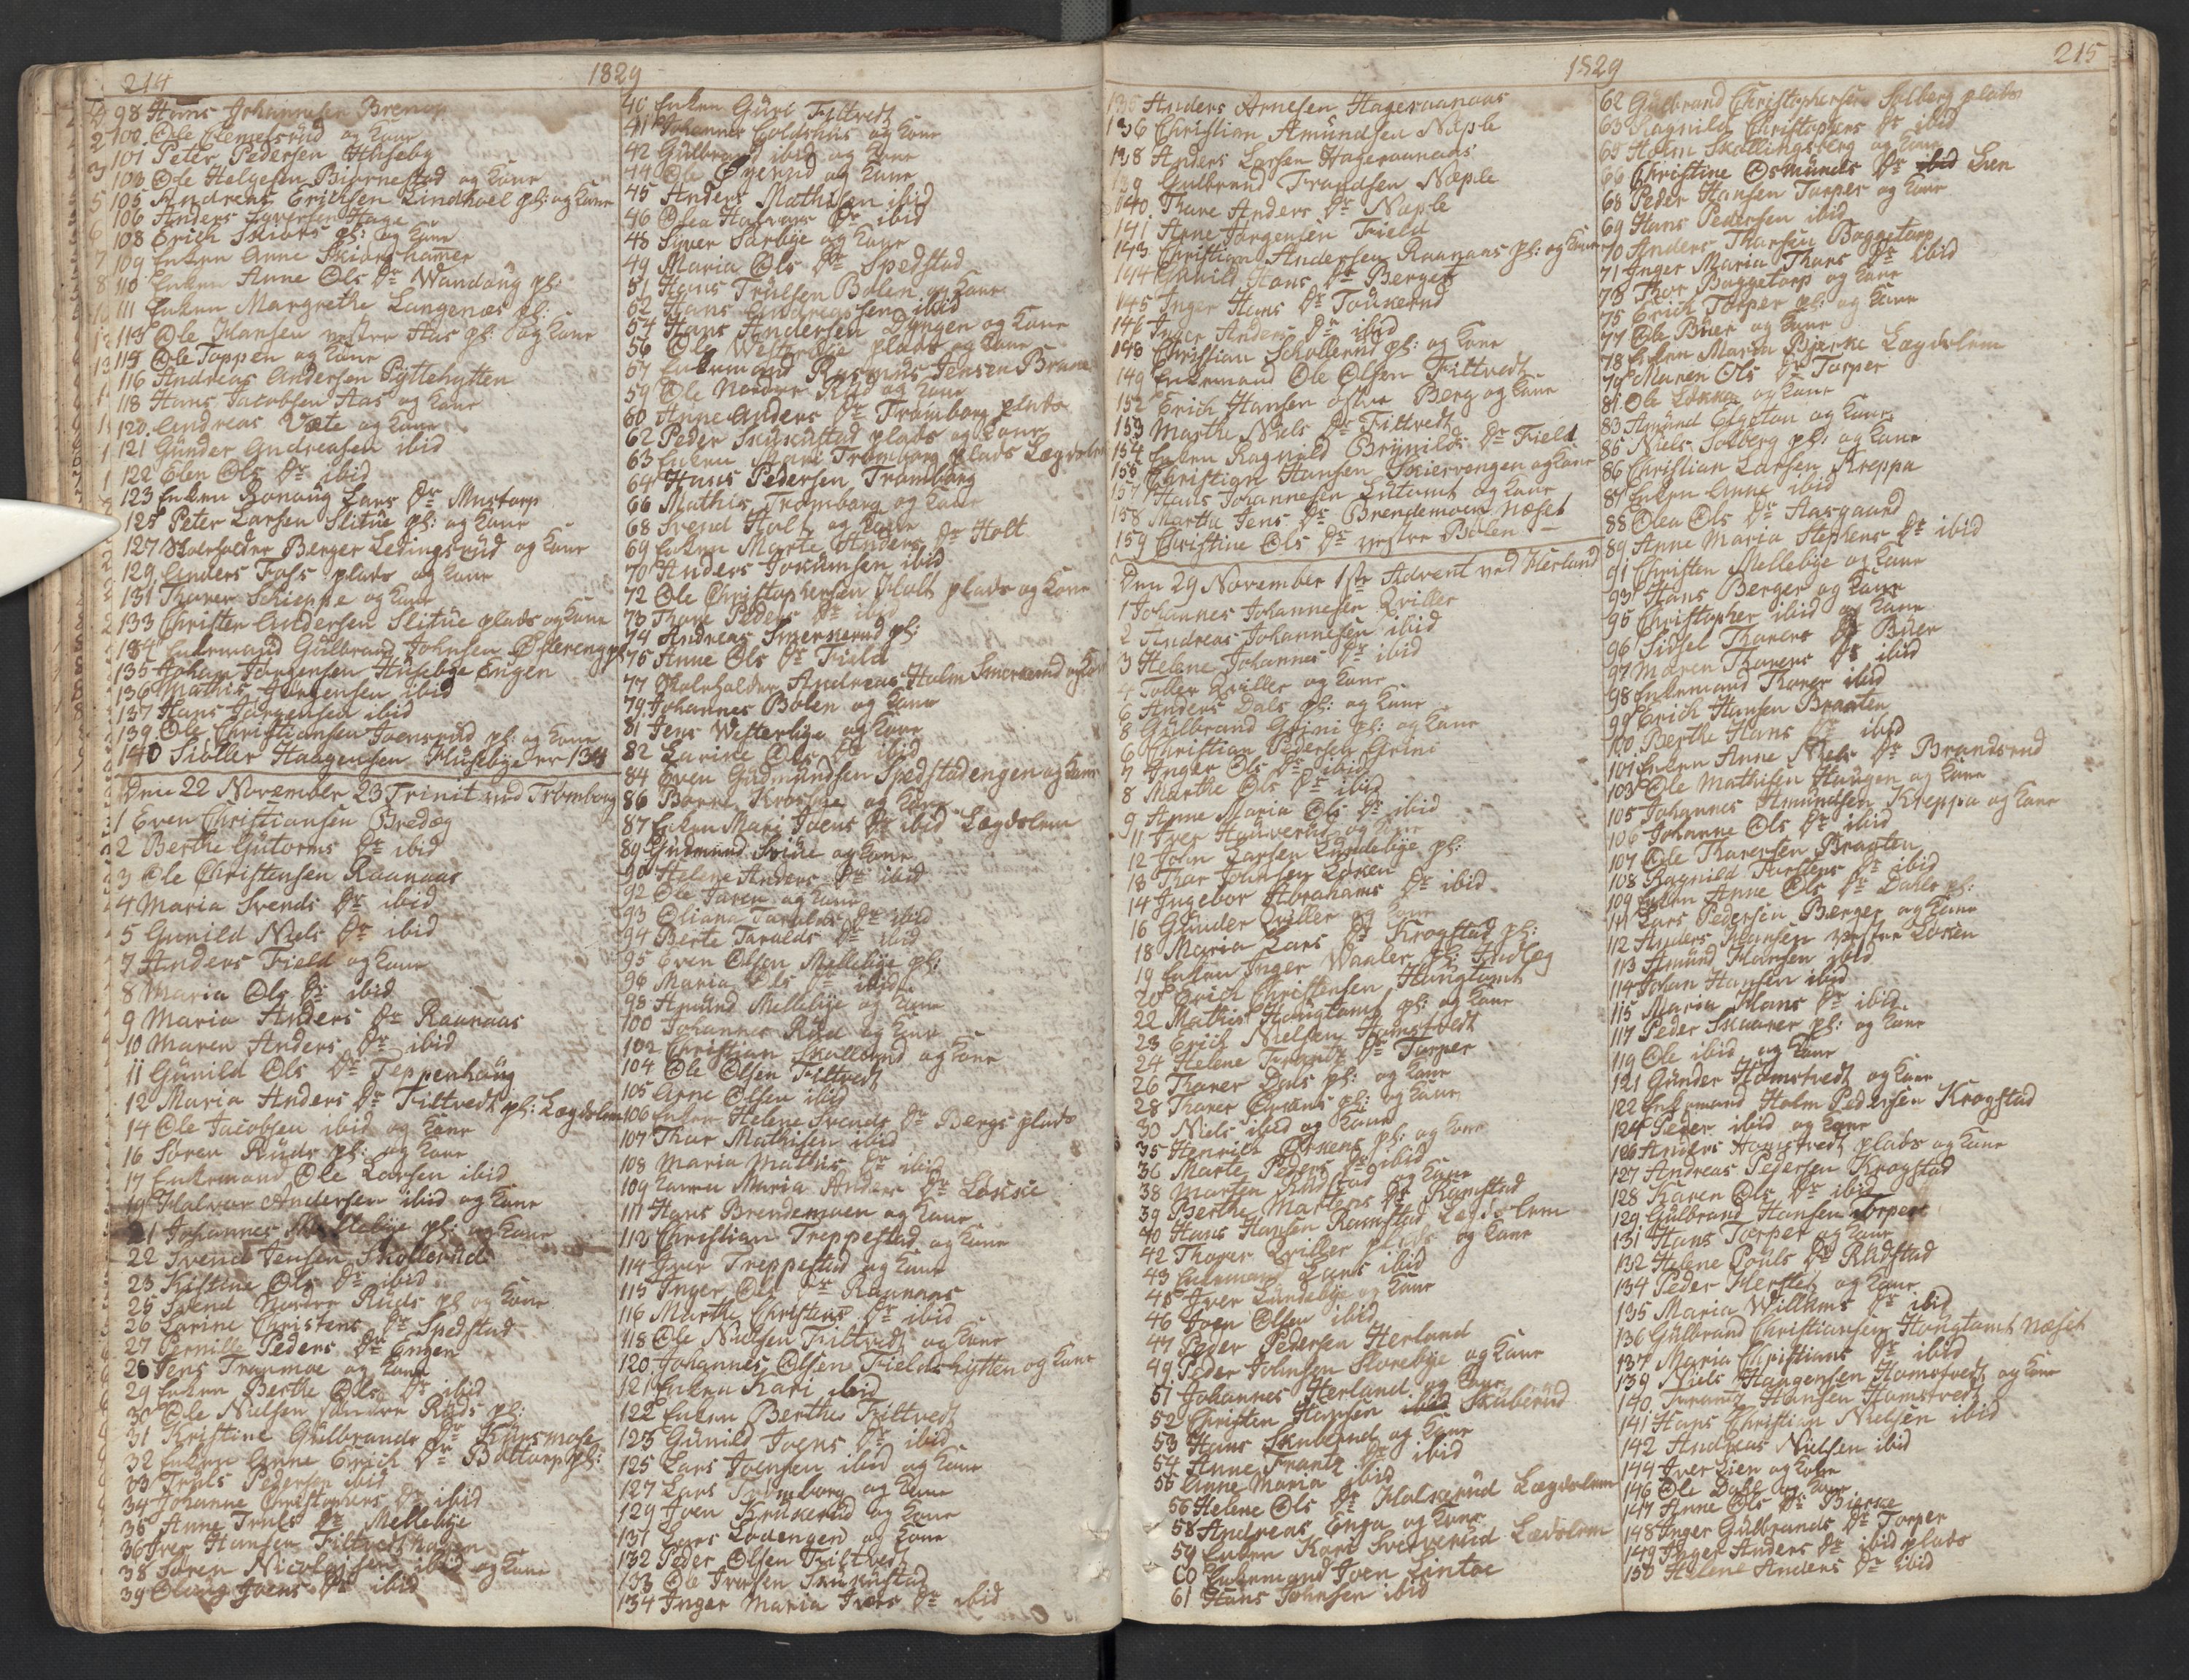 214
1829
98 Hans Johannesen Brenen
100. Ole Clemetsrud og Kone
101 Peter Pedersen Huseby
103 Ole Helgesen Biørnestad og Kone
105 Andreas Erichsen Lindhoel pl: og Kone
106 Anders Syversen Hage
108 Erich Skiørs pl: og Kone
109 Enken Anne Skiørshamer
110 Enken Anne Ols Dr Wandøug pl:
111 Enken Margrethe Langenæs pl:
113 Ole Hansen vestre Aas pl: og Kone
115 Ole Toppen og Kone
116 Andreas Andersen Pyttehytten
118 Hans Jacobsen Aas og Kone
120. Andreas Væte og Kone
121 Gunder Andreasen ibid
122 Elen Ols Dr ibid
123 Enken Ronaug Lars Dr Mustorp
125 Peter Larsen Slitue pl: og Kone
127 Skoleholder Berger Ledingsrud og Kone
129 Anders Foss plads og Kone
131 Thorer Schieppe og Kone
133 Christen Andersen Slitue plads og Kone
134 Enkemand Gulbrand Johnsen Østereng pl
135 Johan Jørgensen Husebye Engen
136 Mathis Jørgensen ibid
137 Hans Jørgensen ibid
139 Ole Christiansen Joensrud pl: og Kone
140 Siøller Haagensen Husebye
Den 22 November 23 Trinit ved Trømborg
1 Even Christiansen Bredæg
2 Berthe Gutorms Dr ibid
3 Ole Christensen Raanaas
4 Maria Svends Dr ibid
5 Gunild Niels Dr ibid
7 Anders Field og Kone
8 Maria Ols Dr ibid
9 Maria Anders Dr Raanaas
10 Maren Anders Dr ibid
11 Gunild Ols Dr Teppenhaug
12 Maria Anders Dr Filtvedt pl: Lægdslem
14 Ole Jacobsen ibid og Kone
16 Søren Ruds pl: og Kone
17 Enkemand Ole Larsen ibid
19 Halvor Andersen ibid og Kone
21 Johannes Mellebye pl: og Kone
22 Svend Jensen Skollerud
23 Kistine Ols Dr ibid
25 Svend Nordre Ruds pl og Kone
26 Larine Christens Dr Spedstad
27 Pernille Peders Dr Engen
28 Jens Tronmoe og Kone
29 Enken Berthe Ols Dr ibid
30 Ole Nielsen søndre Ruds pl:
31 Kristine Gulbrands Dr
32 Enken Anne Erich Dr Bøttorp pl:
33 Truls Pedersen ibid
34 Johanne Christophers Dr ibid
35 Anne Truls Dr Mellebye
36 Iver Hansen Filtvedthagen
38 Søren Nicolaisen ibid og Kone
39 Olaug Joens Dr ibid
40 Enken Guri Filtvedt
41 Johannes Coldshus og Kone
42 Gulbrand ibid og Kone
44 Ole Øyerud og Kone
45 Anders Mathisen ibid
46 Olea Halvors Dr ibid
48 Syver Sarbye og Kone
49 Maria Ols Dr Spedstad
51 Hans Trulsen Bolen og Kone
52 Hans Andreassen ibid
54 Hans Andersen Dyngen og Kone
56 Ole Westerbye plads og Kone
57 Enkemand Rasmus Jensen
59 Ole Nordre Rud og Kone
60 Anne Anders Dr Trømborg plads
62 Peder Skukustad plads og Kone
63 Enken Mari Trømborg plads Lægdslem
64 Hans Pedersen Trømborg
66 Mathis Trømborg og Kone
68 Svend Holt og Kone
69 Enken Marte Anders Dr Holt
70 Anders Jokumsen ibid
72 Ole Christophersen Holt plads og Kone
73 Thore Peders Dr ibid
74 Andreas Smerkerud pl:
75 Anne Ols Dr Field
77 Skoleholder Andreas Holm Smerkerud og Kone
79 Johannes Bolen og Kone
81 Jens Westerbye og Kone
82 Larine Ols Dr ibid
84 Even Gudmundsen Spedstadengen og Kone
86 Børre Krosbye og Kone
87 Enken Mari Joens Dr ibid Lægdslem
89 Gudmund Krosbye og Kone
90 Helene Anders Dr ibid
92 Ole Jaren og Kone
93 Oliana Taralds Dr ibid
94 Berte Taralds Dr ibid
95 Even Olsen Mellebye pl:
96 Maria Ols Dr ibid
98 Amund Mellebye og Kone
100 Johannes Rud og Kone
102 Christian Skollerud og Kone
104 Ole Olsen Filtvedt
105 Arne Olsen ibid
106 Enken Helene Svends Dr Bergs plads
107 Thor Mathisen ibid
108 Maria Mathis Dr ibid
109 Karen Maria Anders Dr
111 Hans Brendemoen og Kone
112 Christian Treppestad og Kone
114 Iver Treppestad og Kone
115 Inger Ols Dr Raanaas
116 Marthe Christens Dr ibid
118 Ole Nielsen Filtvedt og Kone
120 Johannes Olsen Fieldshytten og Kone
121 Enken Kari ibid
122 Enken Berthe Filtvedt
123 Gunild Joens Dr ibid
125 Lars Joensen ibid og Kone
127 Lars Trømborg og Kone
129 Joen Krukerud og Kone
131 Lars Lodengen og Kone
132 Peder Olsen Filtvedt
133 Ole Iversen Skukustad
134 Inger Maria Ivers Dr ibid
1829
215
135 Anders Arnesen Hageraanaas
136 Christian Amundsen Næple
138 Anders Larsen Hageraanaas
139 Gulbrand Frandsen Næple
140. Thore Anders Dr Næple
141 Arne Jørgensen Field
143 Christian Andersen Raanaas pl: og Kone
144 Gunild Hans Dr Berget
145 Inger Hans Dr Toukerud
146 Inger Anders Dr ibid
148 Christian Schollerud pl: og Kone
149 Enkemand Ole Olsen Filtvedt
152 Erich Hansen østre Berg og Kone
153 Marthe Niels Dr Filtvedt
154 Enken Ragnild Brynilds Dr Field
155 Christian Hansen Skiervengen og Kone
157 Hans Johannesen Lutomt og Kone
158 Marthe Jens Dr Brendemoen Næset
159 Christine Ols Dr vestre Bolen
Den 29 November 1ste Advent ved Herland
1 Johannes Johannesen Qviller
2 Andreas Johannesen ibid
3 Helene Johannes Dr ibid
4 Toller Qviller og Kone
6 Anders Dals pl: og Kone
8 Gulbrand Grini pl: og Kone
6 Christian Pedersen Grini
7 Inger Ols Dr ibid
8 Marthe Ols Dr ibid
9 Anne Maria Ols Dr ibid
11 Iver Hauverud og Kone
12 John Larsen Lundebye pl:
13 Thor Johnsen Løken
14 Ingebor Abrahams Dr ibid
16 Gunder Qviller og Kone
18 Maria Lars Dr Krogstad pl:
19 Enken Inger Waaler pl: Indlæg
20 Erich Christensen Haugtomt
22 Mathis Haugtomt pl: og Kone
23 Erich Nielsen Hamstvedt
24 Helene Frants Dr Torper
26 Thorer Dals pl: og Kone
28 Thorer Ørkens pl: og Kone
30 Niels ibid og Kone
35 Henrich Ørkens pl: og Kone
36 Marte Peders Dr ibid
38 Morten Rudstad og Kone
39 Berthe Mortens Dr Ramstad
40 Hans Hansen Ramstad Lægdslem
42 Thorer Qviller plads og Kone
43 Enkemand Lars ibid
45 Iver Lundebye og Kone
46 Joen Olsen ibid
47 Peder Pedersen Herland
49 Peder Johnsen Slorebye og Kone
51 Johannes Herland og Kone
52 Christen Hansen ibid Skuberud
53 Hans Skuberud og Kone
54 Anne Frantz Dr ibid
55 Anne Maria ibid
56 Helene Ols Dr Halkerud Lægdslem
58 Andreas Enga og Kone
59 Enken Kari Sververud Lædslem
60 Enkemand Joen Lintoe
61 Hans Johnsen ibid
62 Gulbrand Christophersen Solberg plads
63 Ragnild Christophers Dr ibid
65 Holm Skallingsberg og Kone
66 Christine Osmunds Dr ibid Lien
68 Peder Hansen Torper og Kone
69 Hans Pedersen ibid
70 Anders Thorsen Baggetorp
71 Inger Maria Thors Dr ibid
73 Thor Baggetorp og Kone
75 Erich Torper pl: og Kone
77 Ole Buer og Kone
78 Enken Maren Bjerke Lægdslem
79 Maren Ols Dr Torper
81. Ole Løkke og Kone
83 Amund Elgetun og Kone
85 Niels Solberg pl: og Kone
86 Christian Larsen Kreppa
87 Enken Anne ibid
88 Olea Ols Dr Aasgaard
89 Anne Maria Stephens Dr ibid
91 Christen Mellebye og Kone
93 Hans Berger og Kone
95 Christopher ibid og Kone
96 Sidsel Thorers Dr Buer
97 Maren Thorers Dr ibid
98 Enkemand Thorer ibid
99 Erich Hansen Braaten
100 Berthe Hans Dr ibid
101 Enken Anne Niels Dr Brandsrud
103 Ole Mathisen Haugen og Kone
105 Johannes Amundsen Kreppa og Kone
106 Johanne Ols Dr ibid
107 Ole Thoresen Braaten
108 Ragnild Torstens Dr ibid
109 Enken Anne Ols Dr Dahls pl:
111 Lars Pedersen Berger og Kone
112 Anders Hansen vestre Løken
113 Amund Hansen ibid
114 Johan Hansen ibid
115 Maria Hans Dr ibid
117 Peder Skaarer pl: og Kone
119 Ole ibid og Kone
121 Gunder Hamstvedt og Kone
122 Enkemand Holm Pedersen Krogstad
124 Peder ibid og Kone
126 Anders Hamstvedt plads og Kone
127 Andreas Pedersen Krogstad
128 Karen Ols Dr ibid
129 Gulbrand Hansen Torper
131 Hans Torper og Kone
132 Helene Pouls Dr Rudstad
134 Peder Herslet og Kone
135 Maria Willums Dr ibid
136 Gulbrand Christiansen Hougtomt Næset
137 Maria Christians Dr ibid
139 Niels Haagensen Hamstvedt og Kone
140. Frants Hansen Hamstvedt
141 Hans Christian Nielsen ibid
142 Andreas Nielsen ibid
144 Iver Lien og Kone
146 Ole Dahl og Kone
147 Anne Ols Dr Bierke
148 Inger Gulbrands Dr Torper
149 Inger Anders Dr ibid plads
150 Helene Anders Dr ibid